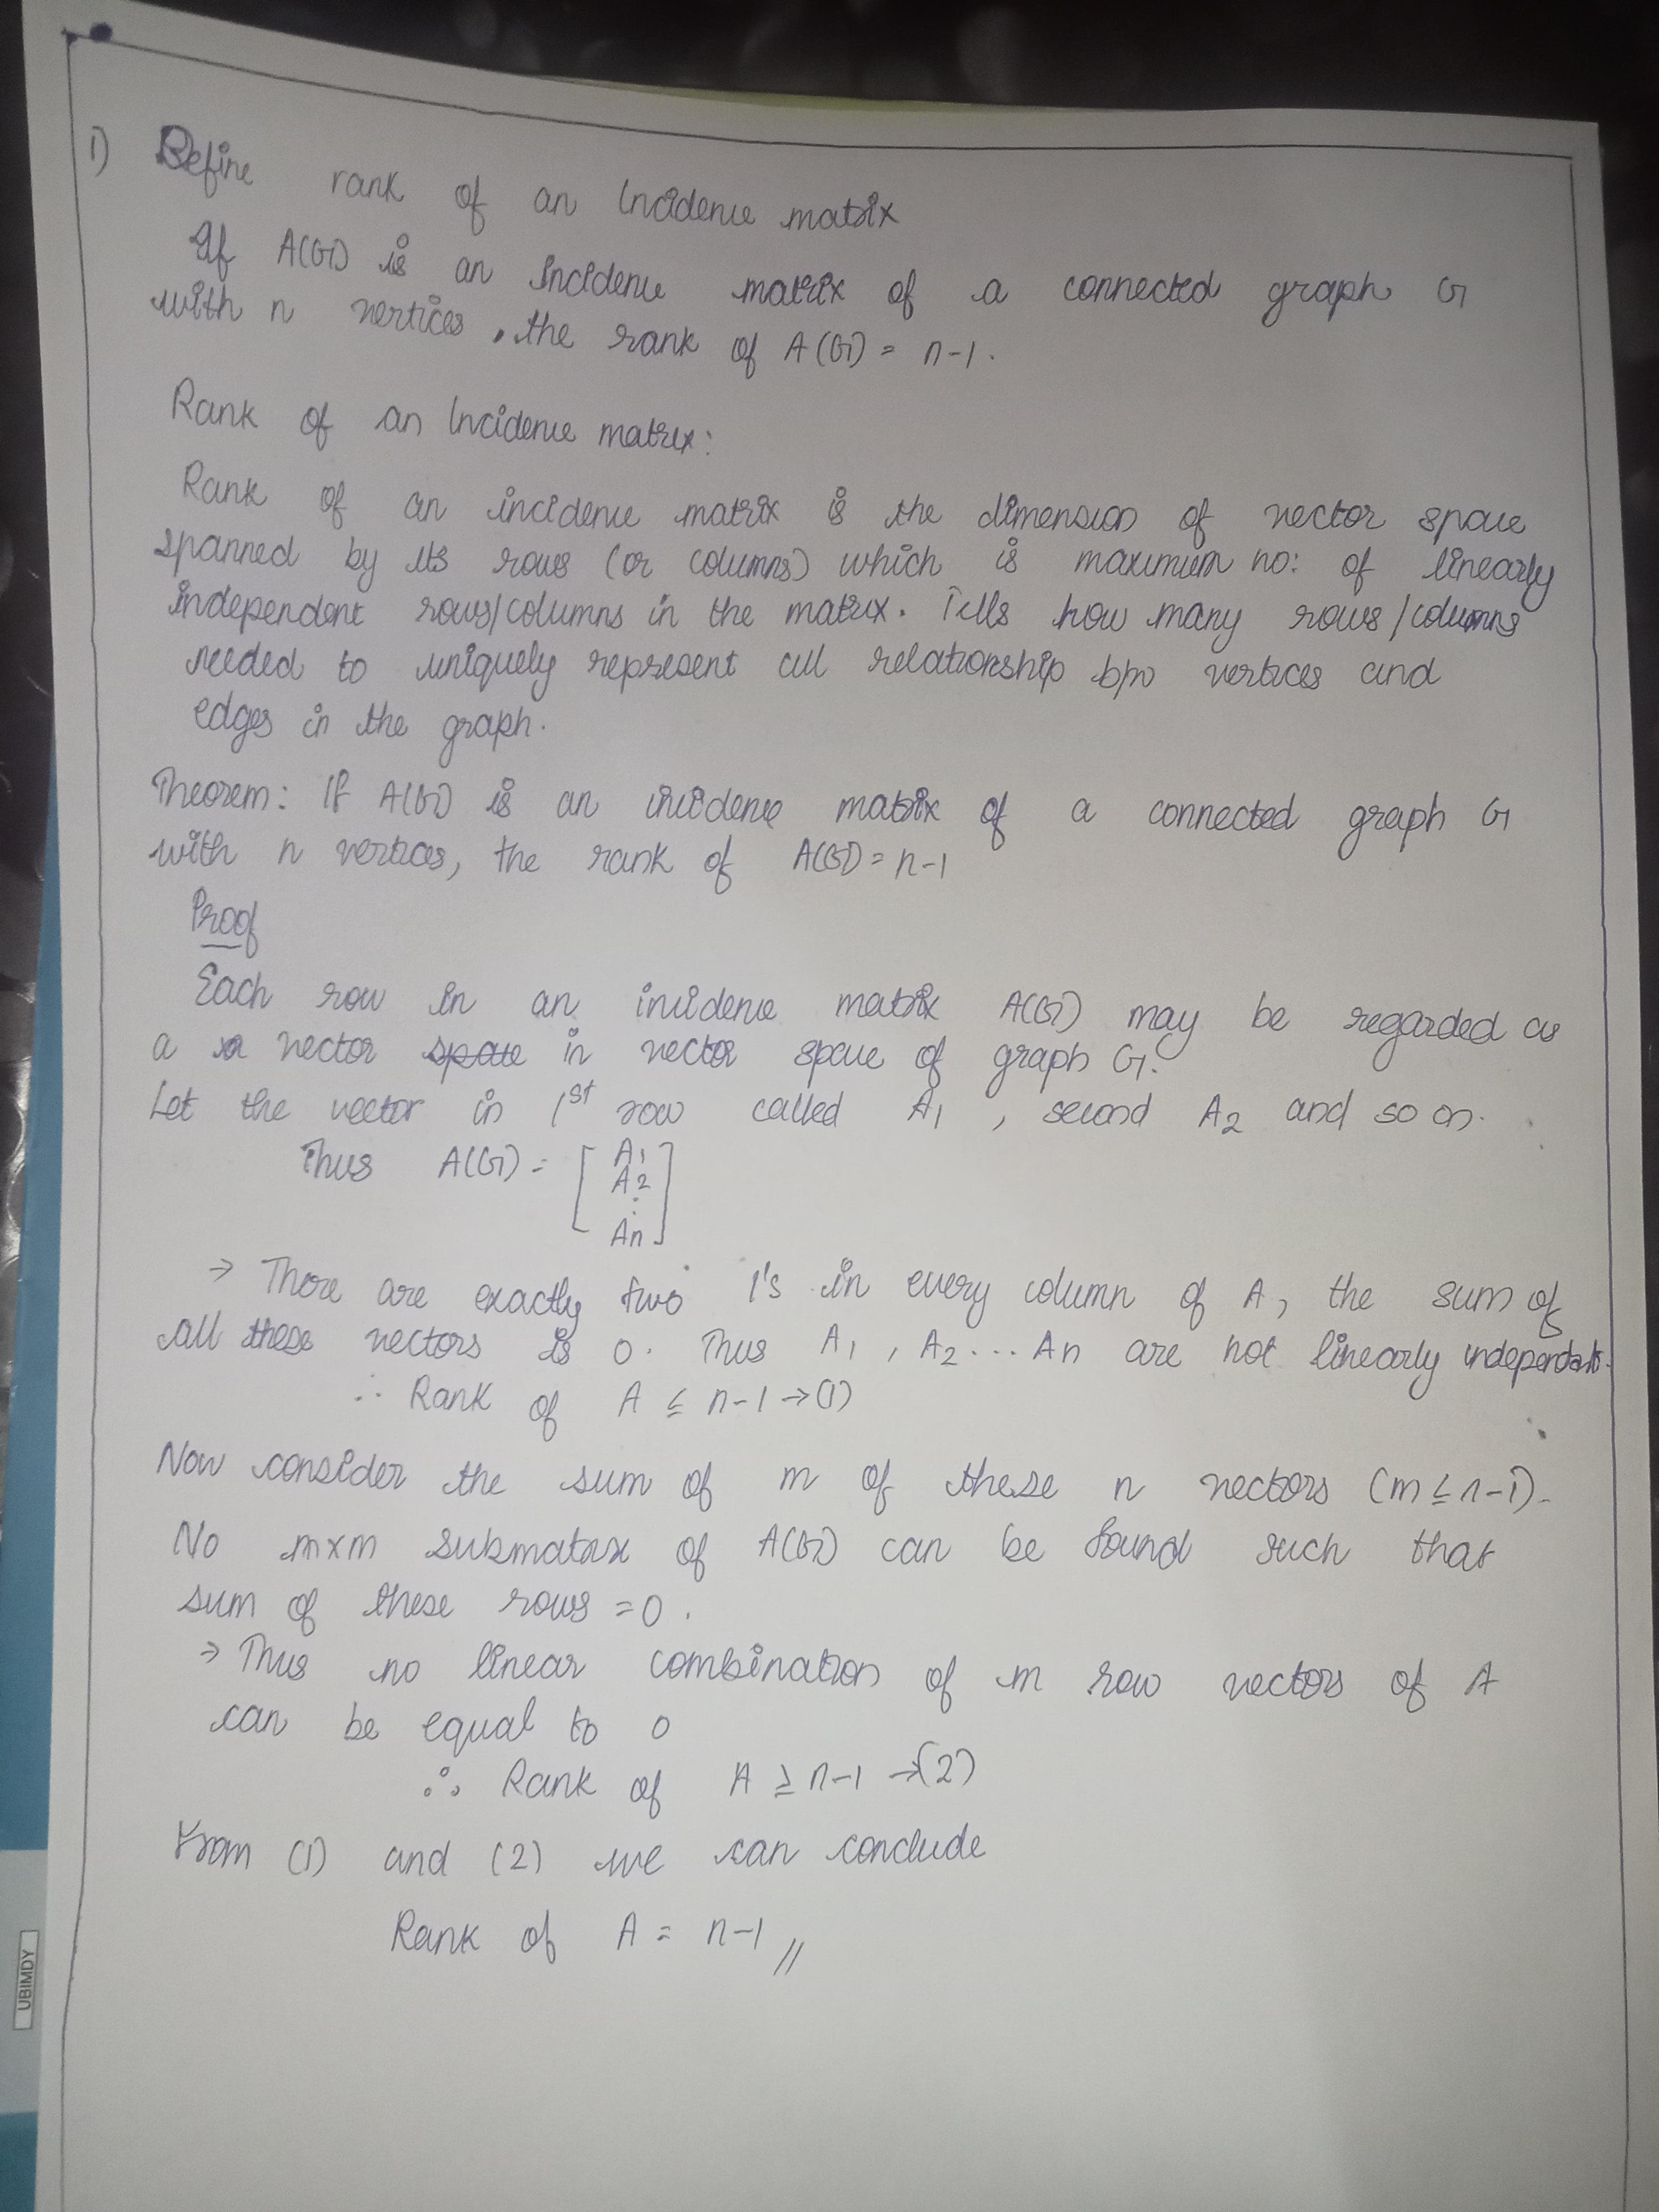 1) Define rank of an Incidence matrix
If A(G) is an incidence matrix of a connected graph G
with n vertices, the rank of A(G) = n-1.
Rank of an Incidence matrix:
Rank of an incidence matrix is the dimension of vector space
spanned by its rows (or columns) which is maximum no: of linearly
independent rows/columns in the matrix. Tells how many rows/columns
needed to uniquely represent all relationship b/w vertices and
edges in the graph.
Theorem: If A(G) is an incidence matrix of a connected graph G
with n vertices, the rank of A(G) = n-1
Proof
Each row in an incidence matrix A(G) may be regarded as
a vector space in vector space of graph G.
Let the vector in 1st row called A1, second A2 and so on.
Thus A(G) = [ A1
A2
:
An ]
→ There are exactly two 1's in every column of A, the sum of
all these vectors is 0. Thus A1, A2 ... An are not linearly independent.
∴ Rank of A ≤ n-1 → (1)
Now consider the sum of m of these n vectors (m ≤ n-1).
No m×m submatrix of A(G) can be found such that
sum of these rows = 0.
→ Thus no linear combination of m row vectors of A
can be equal to 0
∴ Rank of A ≥ n-1 → (2)
From (1) and (2) we can conclude
Rank of A = n-1 //
UBIMDY